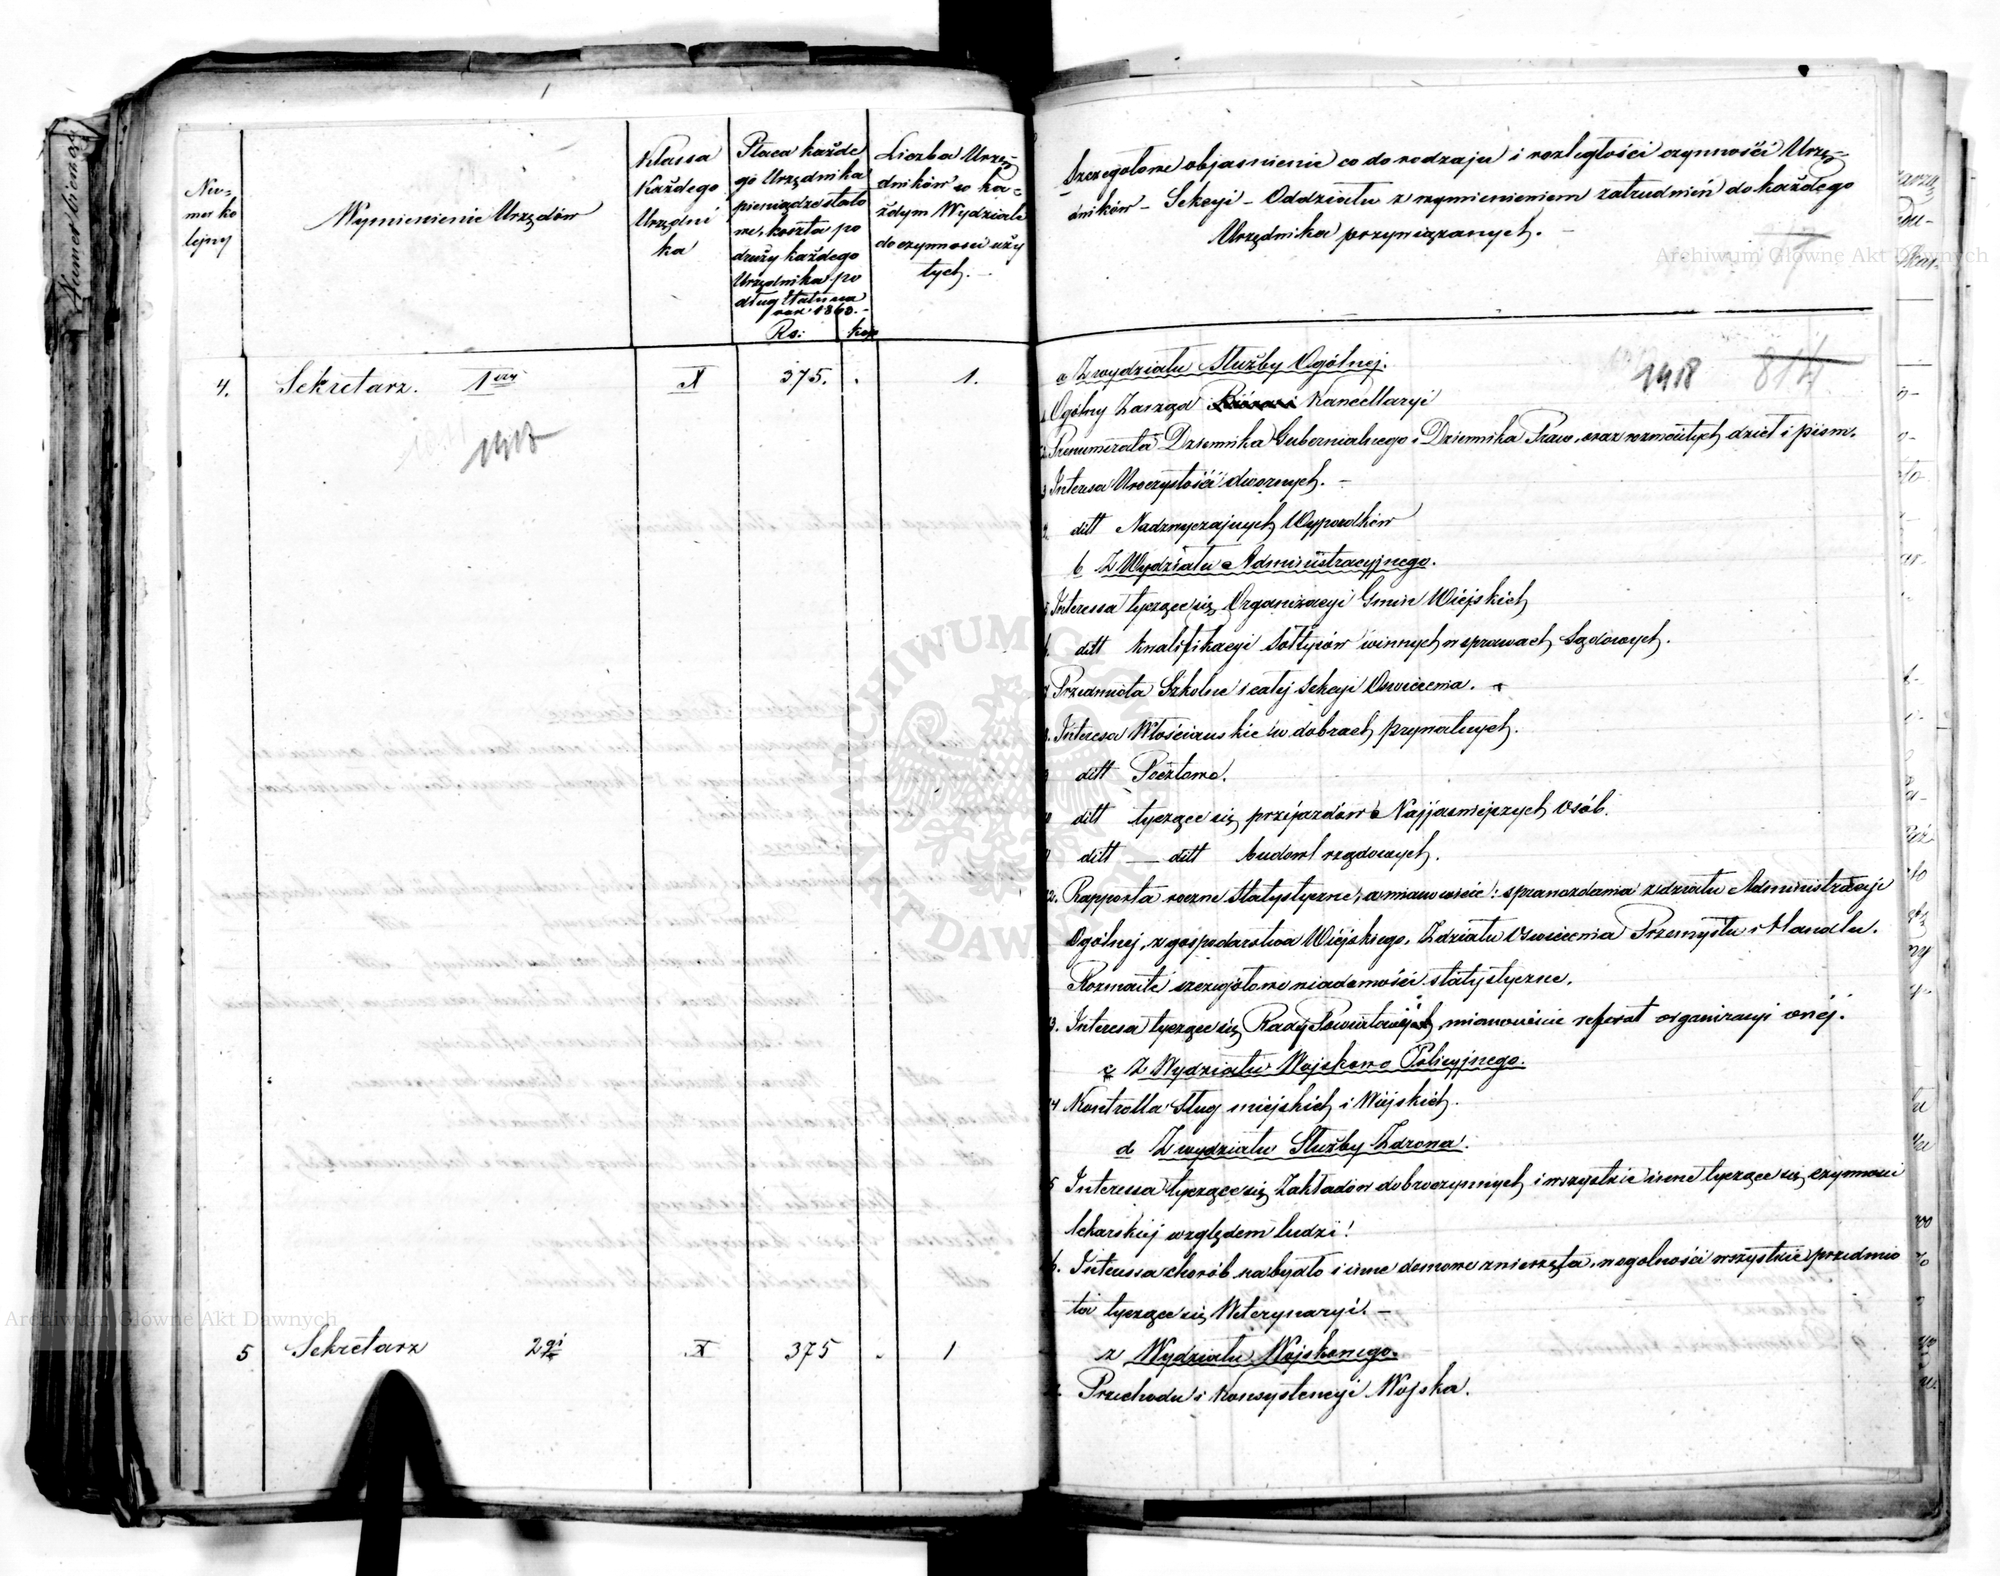 Nu-
mer ko
lejny
Wymienienie Urzędów
Klassa
Każdego
Urzędni
ka
Płaca każde
go Urzędnika
pieniądze stało
we, koszta po
dróży każdego
Urzędnika po
dług Etatu na
rok 1860.-
Rs: kop
Liczba Urzę-
dników w ka-
żdym Wydziale
do czynności uży
tych.-
4. Sekretarz. 1szy X 375. . 1.
1917
5 Sekretarz 2gi X 375 . 1
Szczegołowe objasnienie co do rodzaju i rozległości czynności Urzę-
dników - Sekcyi - Oddziału z wymienieniem zatrudnień do każdego
Urzędnika przywiązanych. -
1918 814
a Z wydziału Służby Ogólnej.
Ogólny Zarząd Kancellaryi
Prenumerata Dziennika Gubernialnego i Dziennika Praw, oraz rozmaitych dzieł i pism.
3 Interesa Uroczystości dwornych. -
ditt Nadzwyczajnych Wypadków
b Z Wydziału Administracyjnego.
5 Interessa tyczące się Organizacyi Gmin Wiejskich
6. ditt kwalifikacyi Sołtysów winnych w sprawach Sądowych.
7 Przedmiota Szkolne i całej Sekcyi Oswiecenia.
8. Interesa Włościanskie w dobrach prywatnych.
9 ditt Pocztowe.
ditt tyczące się przejazdów Najjasniejszych Osób.
ditt — ditt budowl rządowych.
12. Rapporta roczne Statystyczne, a mianowicie: sprawozdania z działu Administracyi
Ogólnej, z gospodarstwa Wiejskiego, Z działu Oswiecenia Przemysłu i Handlu.
Rozmaite szczegołowe wiadomości statystyczne.
13. Interesa tyczące się Rady Powiatowej mianowicie referat organizacyi onéj.
c Z Wydziału Wojskowo Policyjnego.
14 Kontrolla Sług miejskich i Wiejskich.
d Z wydziału Służby Zdrowia.
5 Interessa tyczące się Zakładów dobroczynnych i wszystkie inne tyczące się czynnosci
lekarskiej względem ludzi!
6. Interessa chorób na bydło i inne domowe zwierzęta, w ogolności wszystkie przedmio
ta tyczące się Weterynaryi. -
z Wydziału Wojskowego.
Przechodu i Konsystencyi Wojska.
Archiwum Główne Akt Dawnych
Archiwum Główne Akt Dawnych
ARCHIWUM GŁÓWNE
AKT DAWNYCH